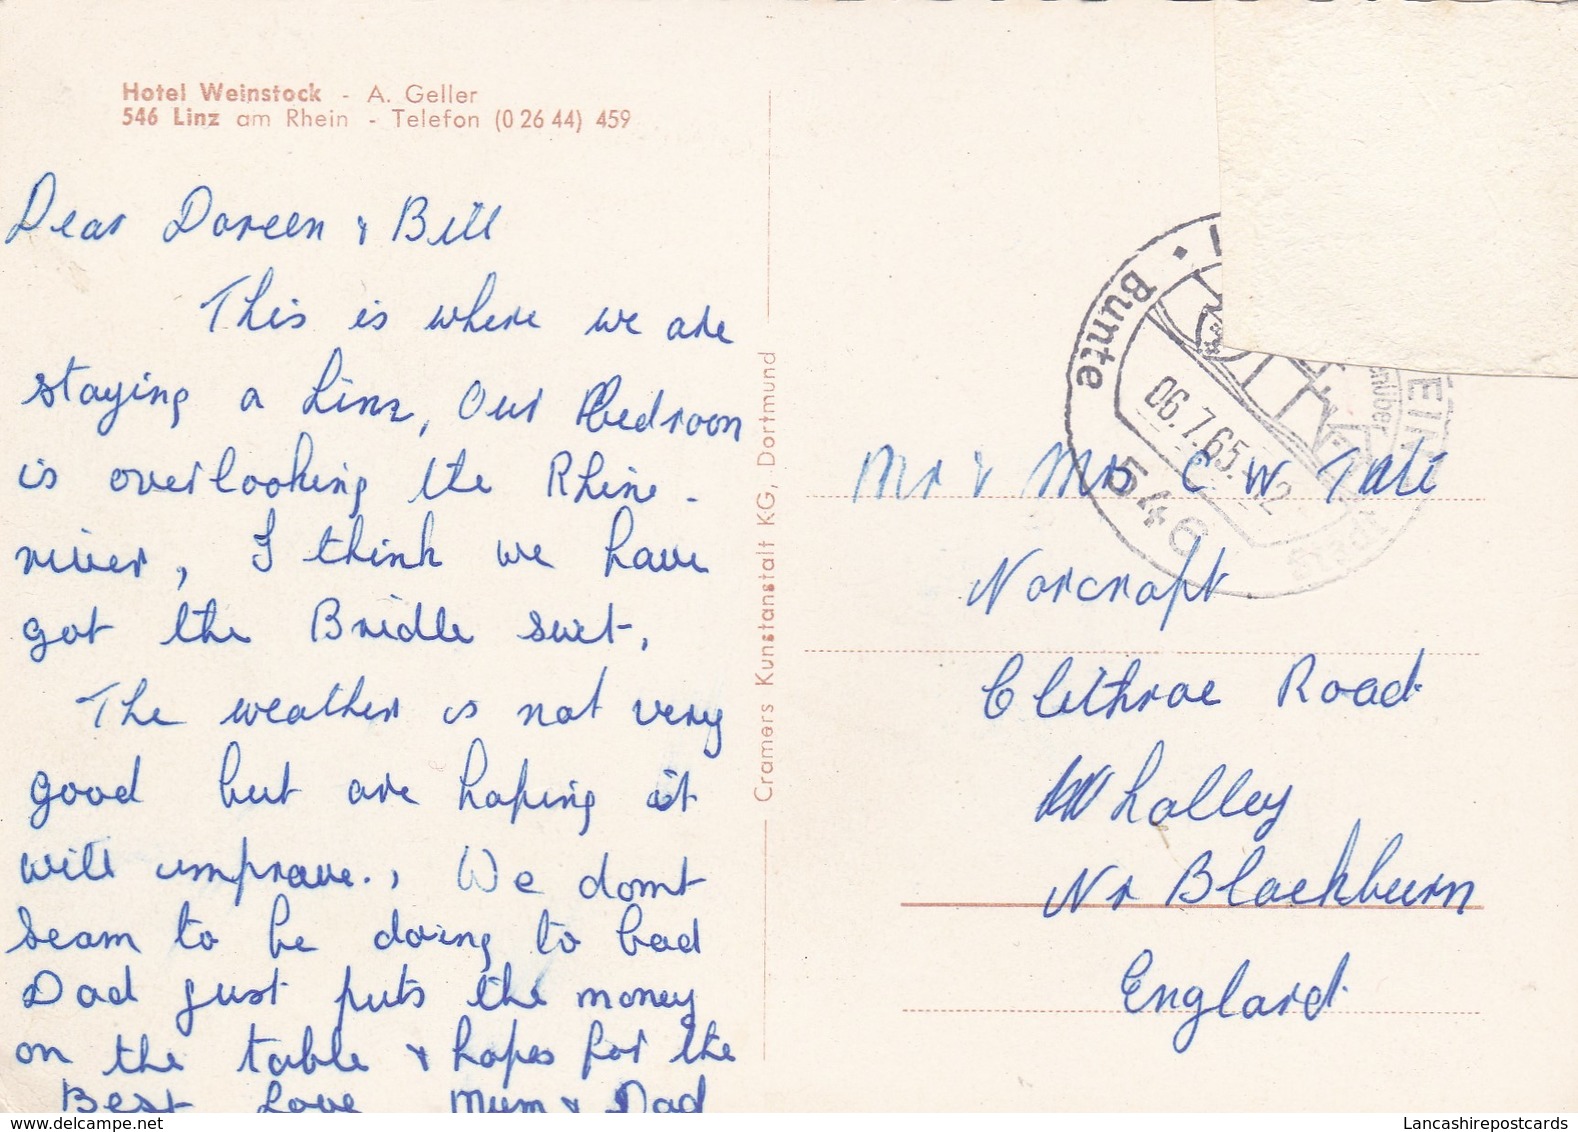 Hotel Weinstock - A. Geller
546 Linz am Rhein - Telefon (0 26 44) 459
Dear Doreen & Bill
This is where we are
staying a Linz, Our Bedroom
is overlooking the Rhine -
river, I think we have
got the Bridle suit,
The weather is not very
good but are hoping it
will improve., We domt
seam to be doing to bad
Dad just puts the money
on the table & hopes for the
Best Love Mum & Dad
Cramers Kunstanstalt KG, Dortmund
Bunte
EIN
06.7.65
546
Mr & Mrs C W Tate
Norcroft
Clithroe Road
Whalley
Nr Blackburn
England
www.delcampe.net
Lancashirepostcards